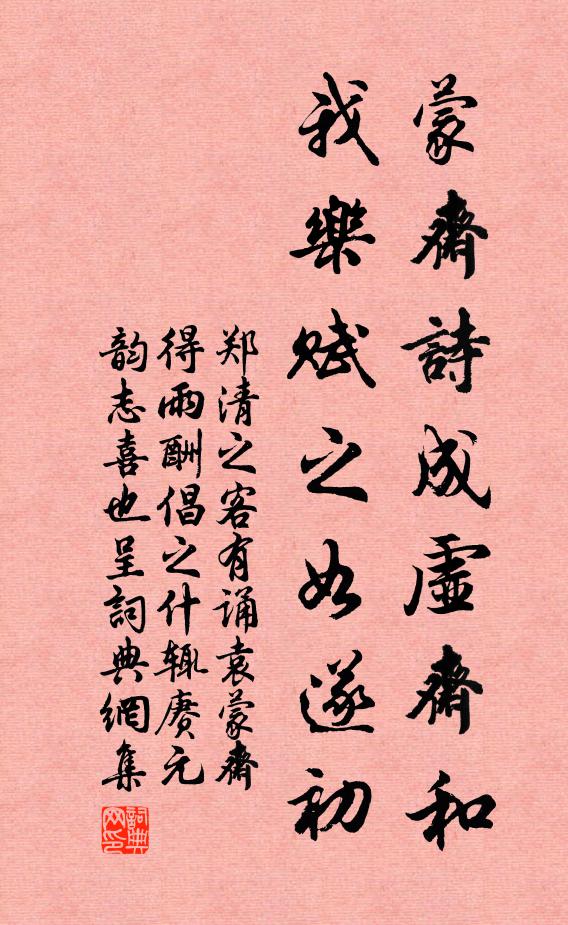 蒙齋詩成虛齋和
我樂賦之如遂初
郑清之客有诵袁蒙齋
得雨酬倡之什辄赓元
韵志喜也呈詞典網集
詞典网印